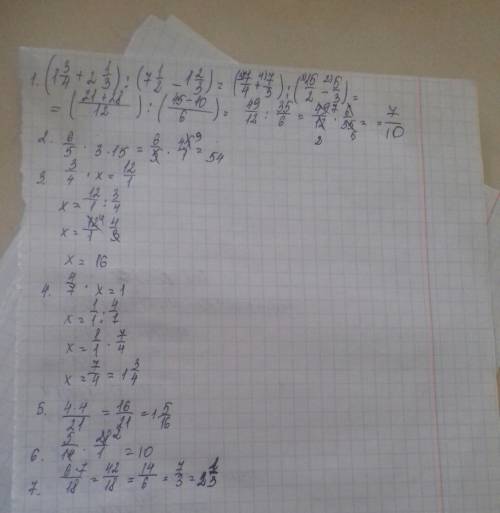 1. (1 3/4 + 2 1/3) : (7 1/2 - 1 2/3) = (3)7/4 + 4)7/3) : (3)15/2 - 2)5/3) =
= ((21+28)/12) : ((45-10)/6) = 49/12 : 35/6 = 49 7/12 2 · 6/35 5 = = 7/10
2. 6/5 · 3·15 = 6/5 · 45 9/1 = 54
3. 3/4 · x = 12/1
x = 12/1 : 3/4
x = 12 4/1 · 4/3
x = 16
4. 4/7 · x = 1
x = 1/1 : 4/7
x = 1/1 · 7/4
x = 7/4 = 1 3/4
5. 4·4/21 = 16/21 = 1 5/16
6. 5/14 · 28 2/1 = 10
7. 6·7/18 = 42/18 = 14/6 = 7/3 = 2 1/3